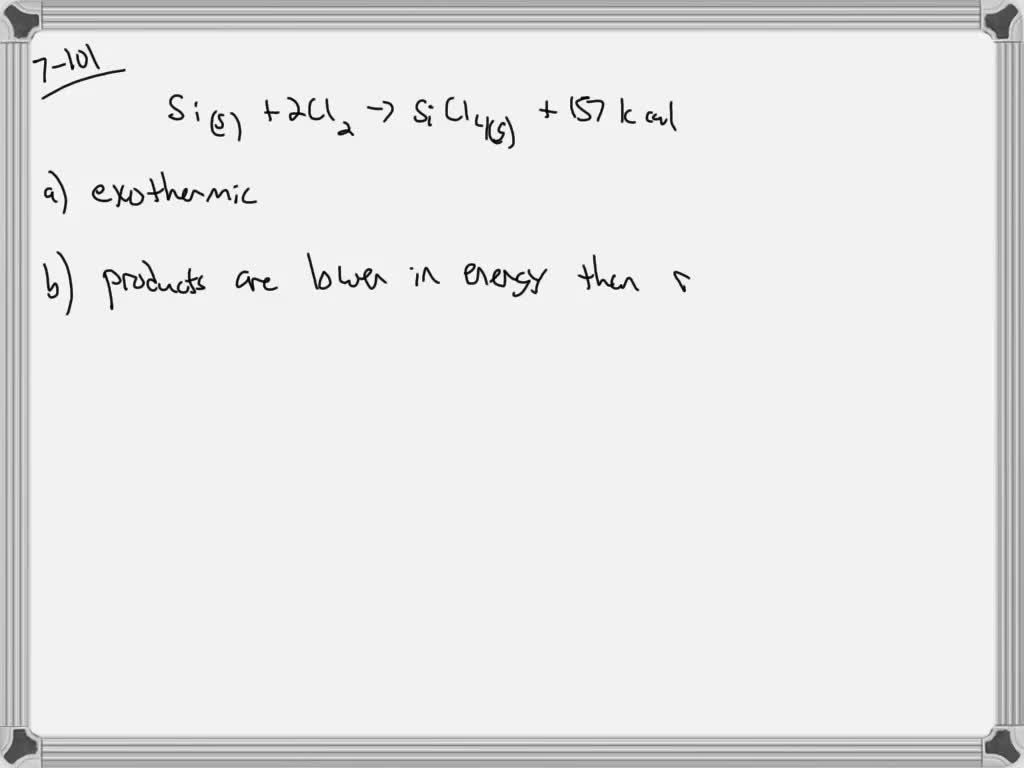 7-101
Si(s) + 2Cl2 → SiCl4(s) + 157 kcal
a) exothermic
b) products are lower in energy then r